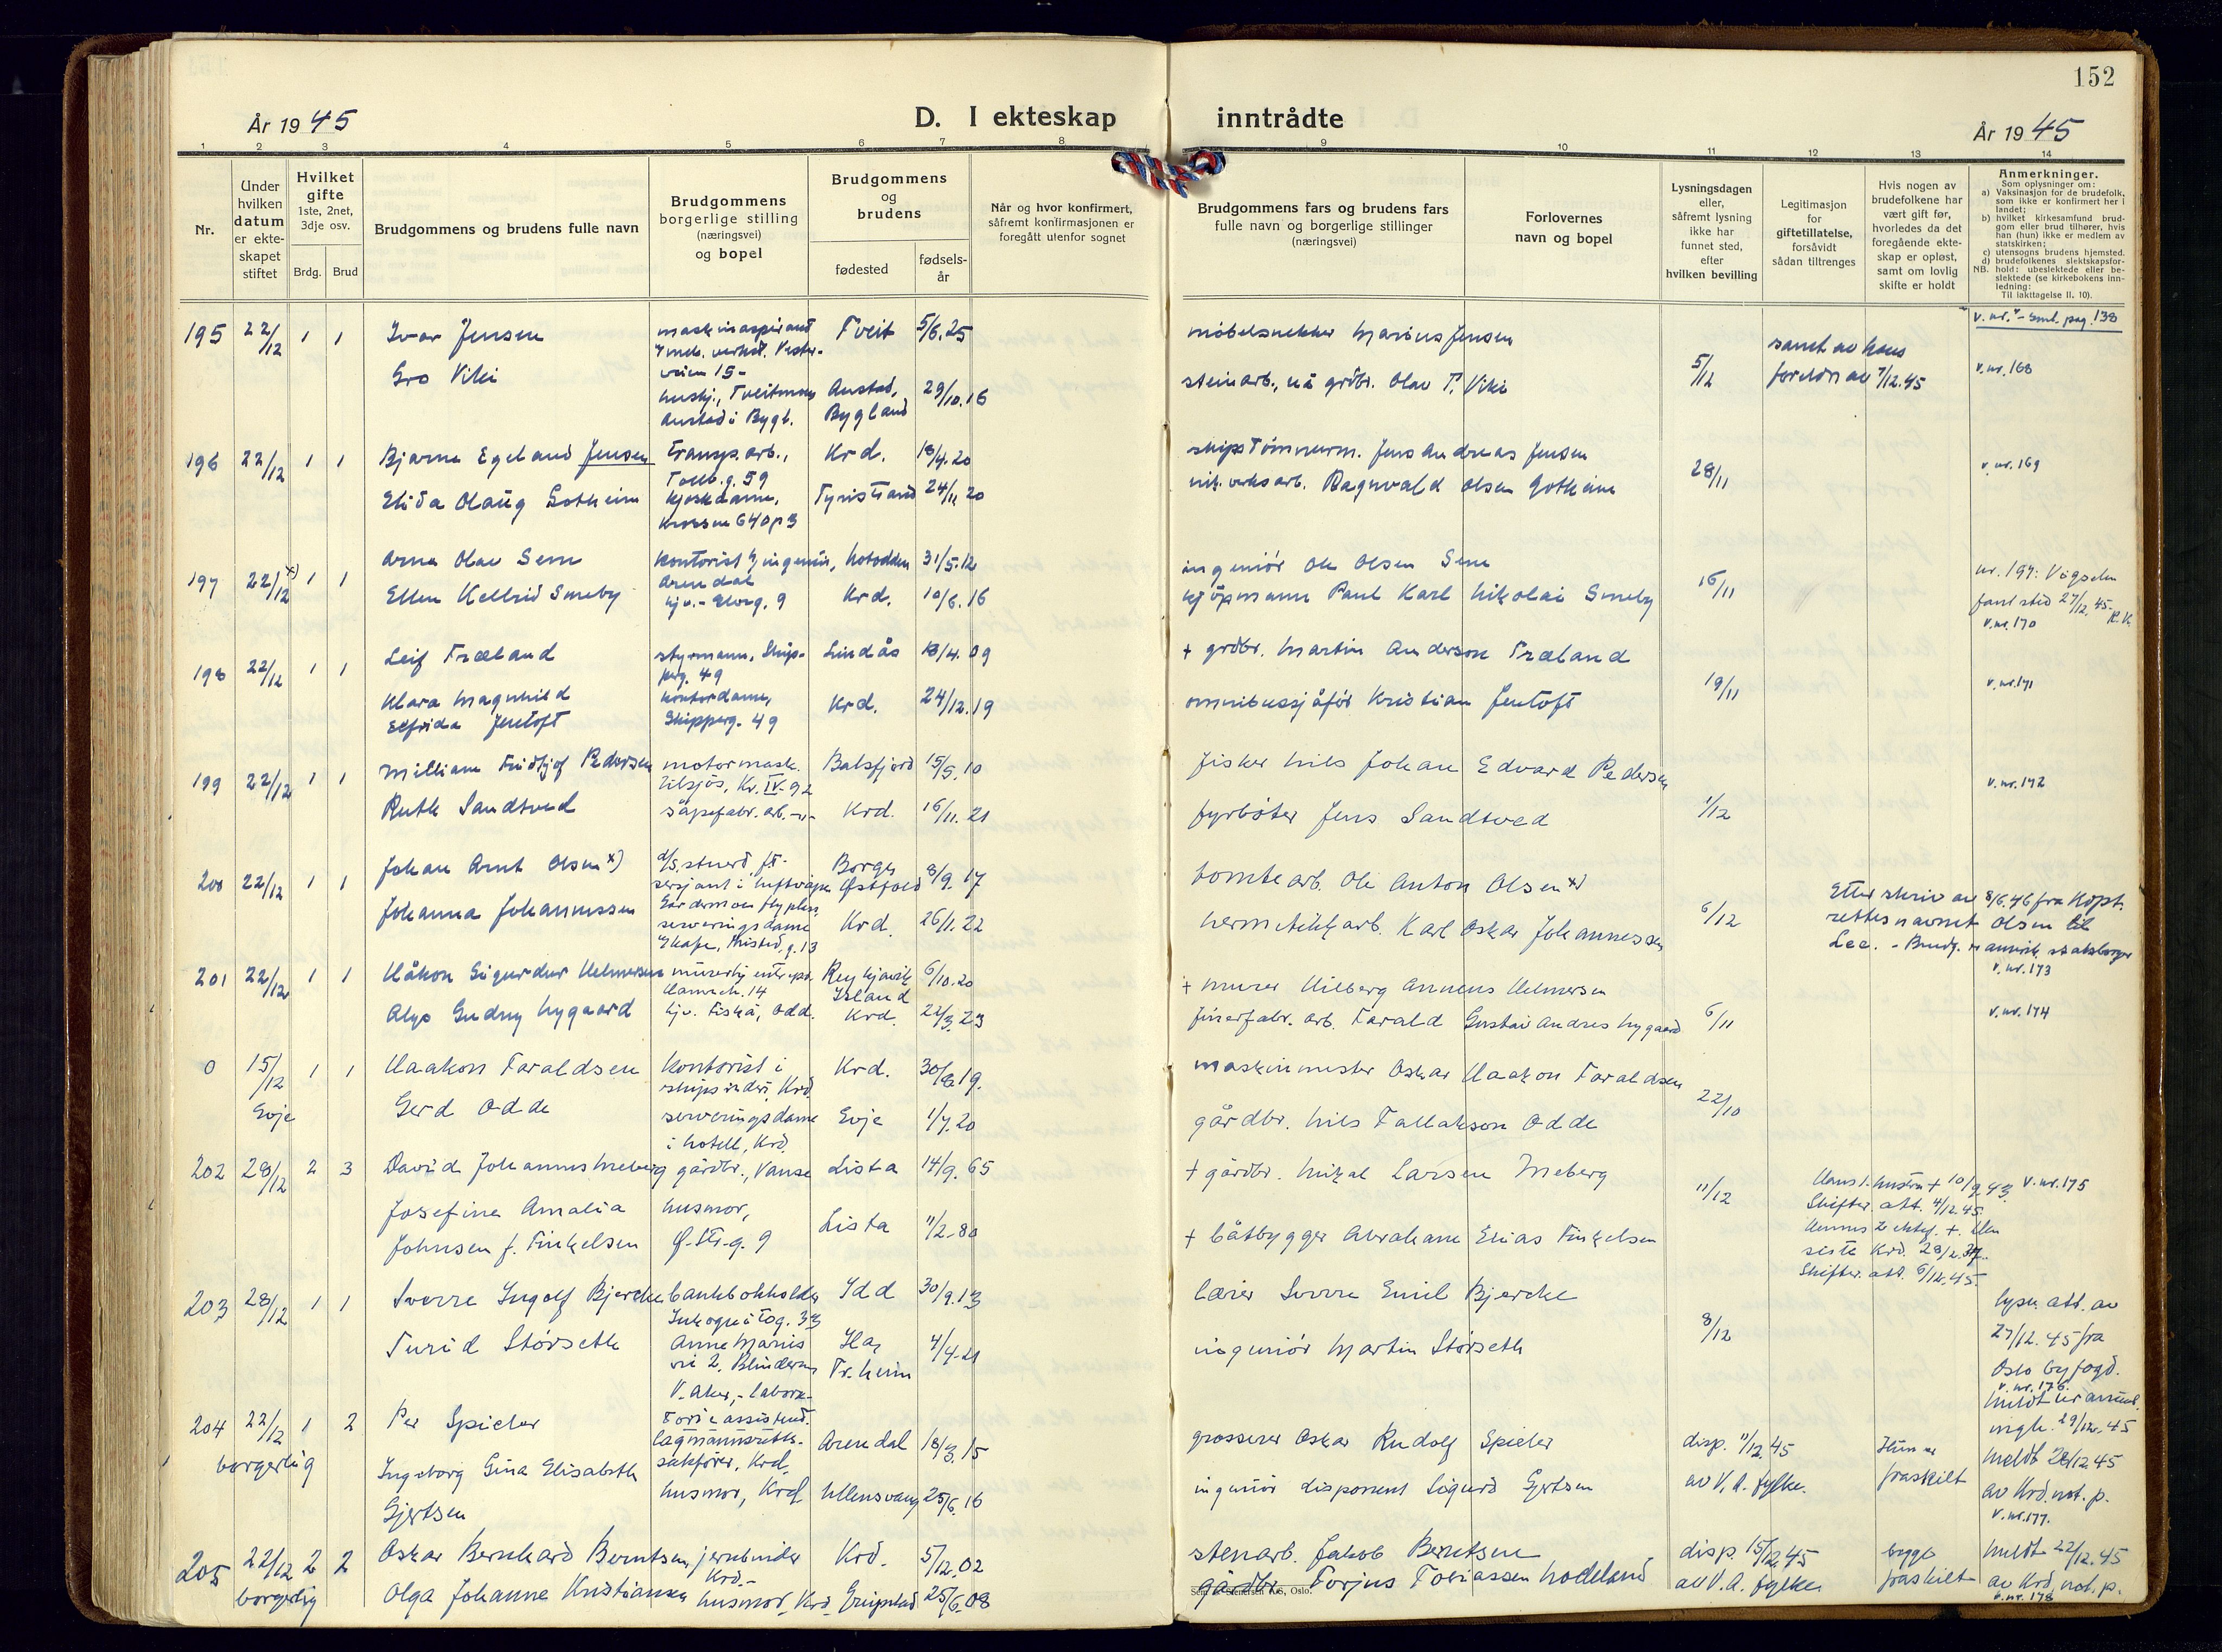 152
År 1945
D. I ekteskap inntrådte
År 1945
1 2 3 4 5 6 7 8 9 10 11 12 13 14
Nr.
Under hvilken datum er ekte-skapet stiftet
Hvilket gifte
1ste, 2net, 3dje osv.
Brdg. Brud
Brudgommens og brudens fulle navn
Brudgommens borgerlige stilling (næringsvei) og bopel
Brudgommens og brudens
fødested
fødsels-år
Når og hvor konfirmert, såfremt konfirmasjonen er foregått utenfor sognet
Brudgommens fars og brudens fars fulle navn og borgerlige stillinger (næringsvei)
Forlovernes navn og bopel
Lysningsdagen eller, såfremt lysning ikke har funnet sted, efter hvilken bevilling
Legitimasjon for giftetillatelse, forsåvidt sådan tiltrenges
Hvis nogen av brudefolkene har vært gift før, hvorledes da det foregående ekte-skap er opløst, samt om lovlig skifte er holdt
Anmerkninger.
Som oplysninger om:
a) Vaksinasjon for de brudefolk, som ikke er konfirmert her i landet;
b) hvilket kirkesamfund brud-gom eller brud tilhører, hvis han (hun) ikke er medlem av statskirken;
c) utensogns brudens hjemsted.
d) brudefolkenes slektskapsfor-
NB. hold: ubeslektede eller be-slektede (se kirkebokens inn-ledning:
Til iakttagelse II. 10).
v. nr. - smb. pag. 138
195 22/12 1 1 Ivar Jensen maskinaspirant Tveit 5/6.25 møbelsnekker Marius Jensen
veien 15-
Gro Viki Austad, Bygland 29/10.16 steinarb., nå grdbr. Olav T. Viki 5/12 samt av hans foreldre av 7/12.45 v. nr. 168
Austad i Bygl.
196 22/12 1 1 Bjarne Egeland Jensen transp.arb., Krd. 18/4.20 skipstømmerm. Jens Andreas Jensen
Tollb.g. 59
Elida Olaug Gotheim kjoskdame, Tyristrand 24/11 20 nik.verksarb. Ragnvald Olsen Gotheim 28/11 v. nr. 169
197 22/12 x) 1 1 Arne Olav Sem kontorist & ingeniør, Notodden 31/5.12 ingeniør Ole Olsen Sem
Arendal
Ellen Kellrid Smeby hjv.- Elveg. 9 Krd. 10/6.16 kjøpmann Paul Karl Nikolai Smeby 16/11 nr. 197: Vigselen fant sted 27/12.45. R.K.
v. nr. 170
198 22/12 1 1 Leif Træland styrmann, Skipperg. 49 Lindås 18/4.09 + grdbr. Martin Anderson Træland
Klara Magnhild Elfrida Jentoft kontordame, Skipperg. 49 Krd. 24/12.19 omnibussjåfør Kristian Jentoft 19/11 v. nr. 171
199 22/12 1 1 William Fridtjof Pedersen motormask. tilsjøs, Kr. IV.-92 Balsfjord 15/5.10 fisker Nils Johan Edvard Pedersen
Ruth Sandtved såpefabr.arb.-"- Krd. 16/11.21 fyrbøter Jens Sandtved 1/12 v. nr. 172
200 22/12 1 1 Johan Arnt Olsen x) Borge, Østfold 8/9.17 tomtearb. Ole Anton Olsen x)
sersjant i luftvåpen
Gardermoen flyplass,
Johanna Johannessen serveringsdame Krd. 26/1.22 hermetikkarb. Karl Oskar Johannessen 6/12
Etter skriv av 8/6.46 fra Kopt. rettes navnet Olsen til Lee. - Brudg. er amerik. statsborger
v. nr. 173
201 22/12 1 1 Håkon Sigurdur Helmersen Reykjavik Island 6/10.20 + murer Hilberg Annæus Helmersen
Alys Gudny Nygaard hjv. Fiskå, Odd. Krd. 22/3.23 finerfabr.arb. Tarald Gustav Andres Nygaard 6/11 v. nr. 174
0 15/12 Evje 1 1 Haakon Taraldsen kontorist i skipsrederi, Krd. Krd. 30/8 19. maskinmester Oskar Haakon Taraldsen
Gerd Odde serveringsdame i hotell, Krd. Evje 1/7.20 gårdbr. Nils Tallakson Odde 22/10
202 28/12 2 3 David Johannes Meberg gårdbr., Vanse Lista 14/9.65 + gårdbr. Mikal Larsen Meberg
Josefine Amalia Johnsen f. Tinkelsen husmor, Ø.Str.g. 9 Lista 11/2.80 + båtbygger Abraham Elias Tinkelsen 11/12
Hans 1. hustru + 10/9 43. Skifter. att. 4/12.45. Hennes 2 ektef. +. Den siste Krd. 28/2.37. Skifter. att. 6/12.45.
v. nr. 175
203 28/12 1 1 Sverre Ingolf Bjercke bankbokholder Idd 30/9.13 lærer Sverre Emil Bjercke
Turid Størseth Anne Maries vei 2, Blindern V. Aker,- laboratorieassistent. Ila, Tr.heim 4/4.21 ingeniør Martin Størseth 8/12
lysn. att. av 27/12.45 fra Oslo byfogd.
v. nr. 176.
204 22/12 borgerlig 1 2 Per Spieler lagmannsrettssakfører, Krd. Arendal 18/3.15 grosserer Oskar Rudolf Spieler disp. 11/12.45 av V. A. fylke. Hun er fraskilt
Ingeborg Gina Elisabeth Gjertsen husmor, Krd. Ullensvang 25/6.16 ingeniør disponent Sigurd Gjertsen
29/12.45
meldt 28/12.45 av Krd. not. p.
v. nr. 177.
205 22/12 borgerlig 2 2 Oskar Bernhard Berntsen jernbinder Krd.- Krd. 5/12.02 stenarb. Jakob Berntsen disp. 15/12.45 av V. A. fylke begge fraskilt meldt 22/12.45 av Krd. not. p.
Olga Johanne Kristiansen husmor, Krd. Grimstad 25/6.08 gårdbr. Torjus Tobiassen Hodeland
v. nr. 178